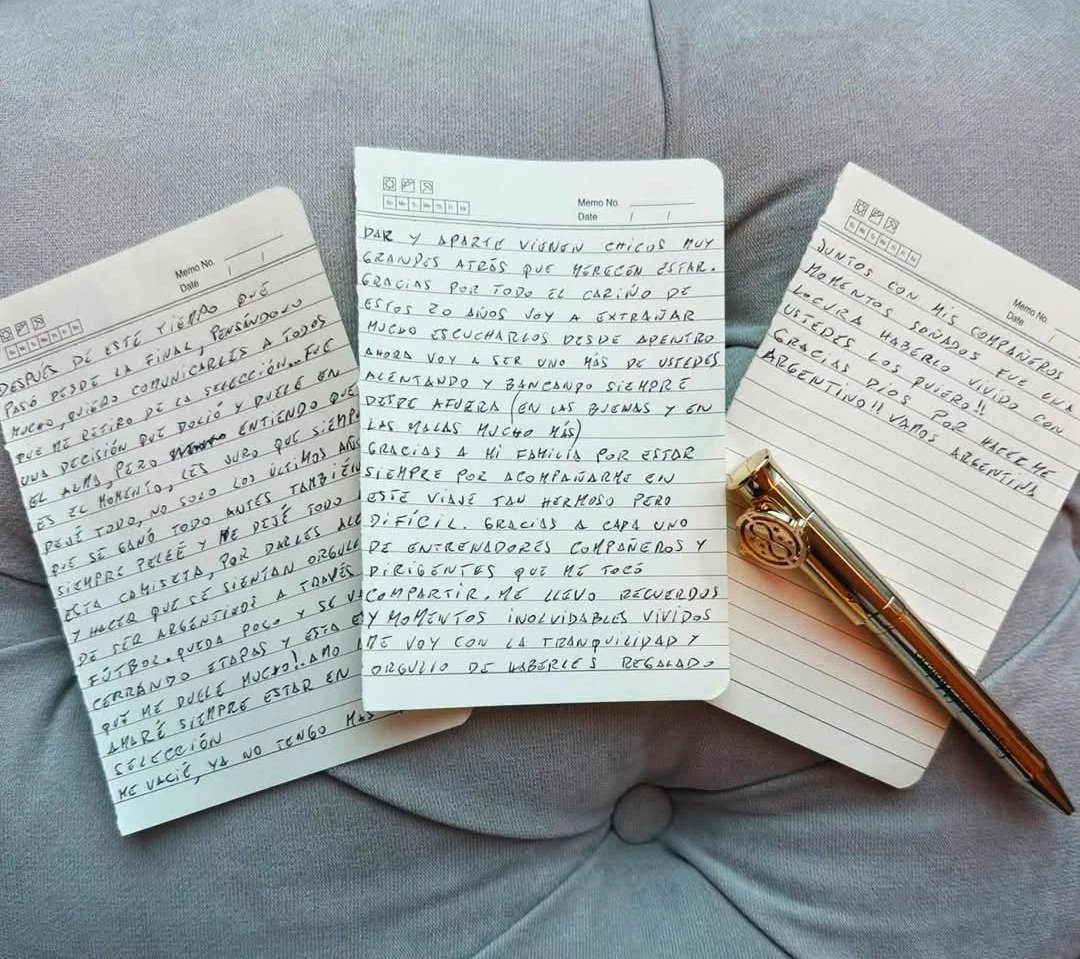 Memo No.
Date / /
DESPUÉS DE ESTE TIEMPO QUE
PASÓ DESDE LA FINAL, PENSÁNDOLO
MUCHO, QUIERO COMUNICARLES A TODOS
QUE ME RETIRO DE LA SELECCIÓN... FUE
UNA DECISIÓN QUE DOLIÓ Y DUELE EN
EL ALMA, PERO ENTIENDO QUE
ES EL MOMENTO, LES JURO QUE SIEMP
DEJÉ TODO, NO SOLO LOS ÚLTIMOS AÑOS
QUE SE GANÓ TODO ANTES TAMBIÉN
SIEMPRE PELEÉ Y ME DEJÉ TODO
ESTA CAMISETA, POR DARLES ALE
Y HACER QUE SE SIENTAN ORGULL
DE SER ARGENTINOS A TRAVÉS
FÚTBOL. QUEDA POCO Y SE VA
CERRANDO ETAPAS Y ESTA ES
QUE ME DUELE MUCHO!. AMO
AMARÉ SIEMPRE ESTAR EN
SELECCIÓN
ME VACIÉ, YA NO TENGO MAS
Memo No.
Date / /
Su Mo Tu We Th Fr Sa
DAR Y APARTE VIENEN CHICOS MUY
GRANDES ATRÁS QUE MERECEN ESTAR.
GRACIAS POR TODO EL CARIÑO DE
ESTOS 20 AÑOS VOY A EXTRAÑAR
MUCHO ESCUCHARLOS DESDE ADENTRO
AHORA VOY A SER UNO MÁS DE USTEDES
ALENTANDO Y BANCANDO SIEMPRE
DESDE AFUERA (EN LAS BUENAS Y EN
LAS MALAS MUCHO MÁS)
GRACIAS A MI FAMILIA POR ESTAR
SIEMPRE POR ACOMPAÑARME EN
ESTE VIAJE TAN HERMOSO PERO
DIFÍCIL. GRACIAS A CADA UNO
DE ENTRENADORES COMPAÑEROS Y
DIRIGENTES QUE ME TOCÓ
COMPARTIR. ME LLEVO RECUERDOS
Y MOMENTOS INOLVIDABLES VIVIDOS
ME VOY CON LA TRANQUILIDAD Y
ORGULLO DE HABERLES REGALADO
Memo No.
Date /
JUNTOS CON MIS COMPAÑEROS
MOMENTOS SOÑADOS FUE UNA
LOCURA HABERLO VIVIDO CON
USTEDES LOS QUIERO!!
GRACIAS DIOS POR HACERME
ARGENTINO!! VAMOS ARGENTINA